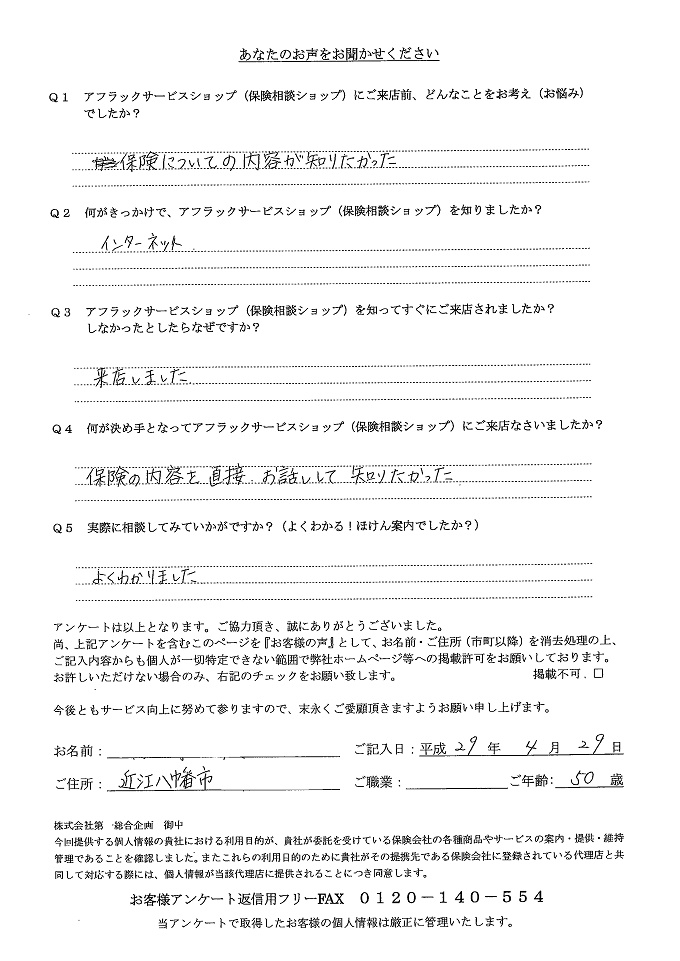 あなたのお声をお聞かせください
Q1 アフラックサービスショップ（保険相談ショップ）にご来店前、どんなことをお考え（お悩み）
でしたか？
保険についての内容が知りたかった
Q2 何がきっかけで、アフラックサービスショップ（保険相談ショップ）を知りましたか？
インターネット
Q3 アフラックサービスショップ（保険相談ショップ）を知ってすぐにご来店されましたか？
しなかったとしたらなぜですか？
来店しました
Q4 何が決め手となってアフラックサービスショップ（保険相談ショップ）にご来店なさいましたか？
保険の内容を直接 お話しして 知りたかった
Q5 実際に相談してみていかがですか？（よくわかる！ほけん案内でしたか？）
よくわかりました
アンケートは以上となります。ご協力頂き、誠にありがとうございました。
尚、上記アンケートを含むこのページを『お客様の声』として、お名前・ご住所（市町以降）を消去処理の上、
ご記入内容からも個人が一切特定できない範囲で弊社ホームページ等への掲載許可をお願いしております。
お許しいただけない場合のみ、右記のチェックをお願い致します。 掲載不可．□
今後ともサービス向上に努めて参りますので、末永くご愛顧頂きますようお願い申し上げます。
お名前： ご記入日：平成 29 年 4 月 29 日
ご住所： 近江八幡市 ご職業： ご年齢： 50 歳
株式会社第一総合企画 御中
今回提供する個人情報の貴社における利用目的が、貴社が委託を受けている保険会社の各種商品やサービスの案内・提供・維持
管理であることを確認しました。またこれらの利用目的のために貴社がその提携先である保険会社に登録されている代理店と共
同して対応する際には、個人情報が当該代理店に提供されることにつき同意します。
お客様アンケート返信用フリーFAX 0120－140－554
当アンケートで取得したお客様の個人情報は厳正に管理いたします。